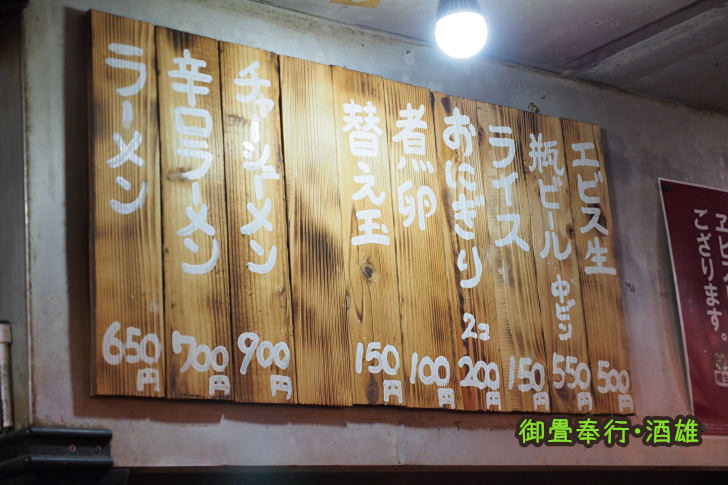 エビス生 500円
瓶ビール 中ビン 550円
ライス 150円
おにぎり 2コ 200円
煮卵 100円
替え玉 150円
チャーシューメン 900円
辛口ラーメン 700円
ラーメン 650円
ございます。
御畳奉行・酒雄